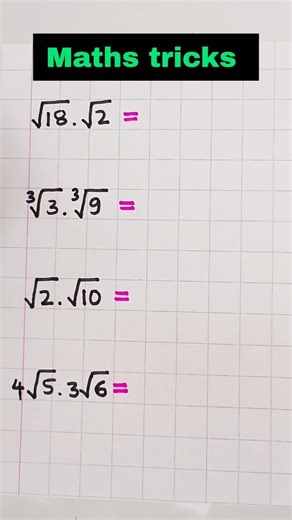 Maths tricks
√18.√2 =
³√3.³√9 =
√2.√10 =
4√5.3√6=